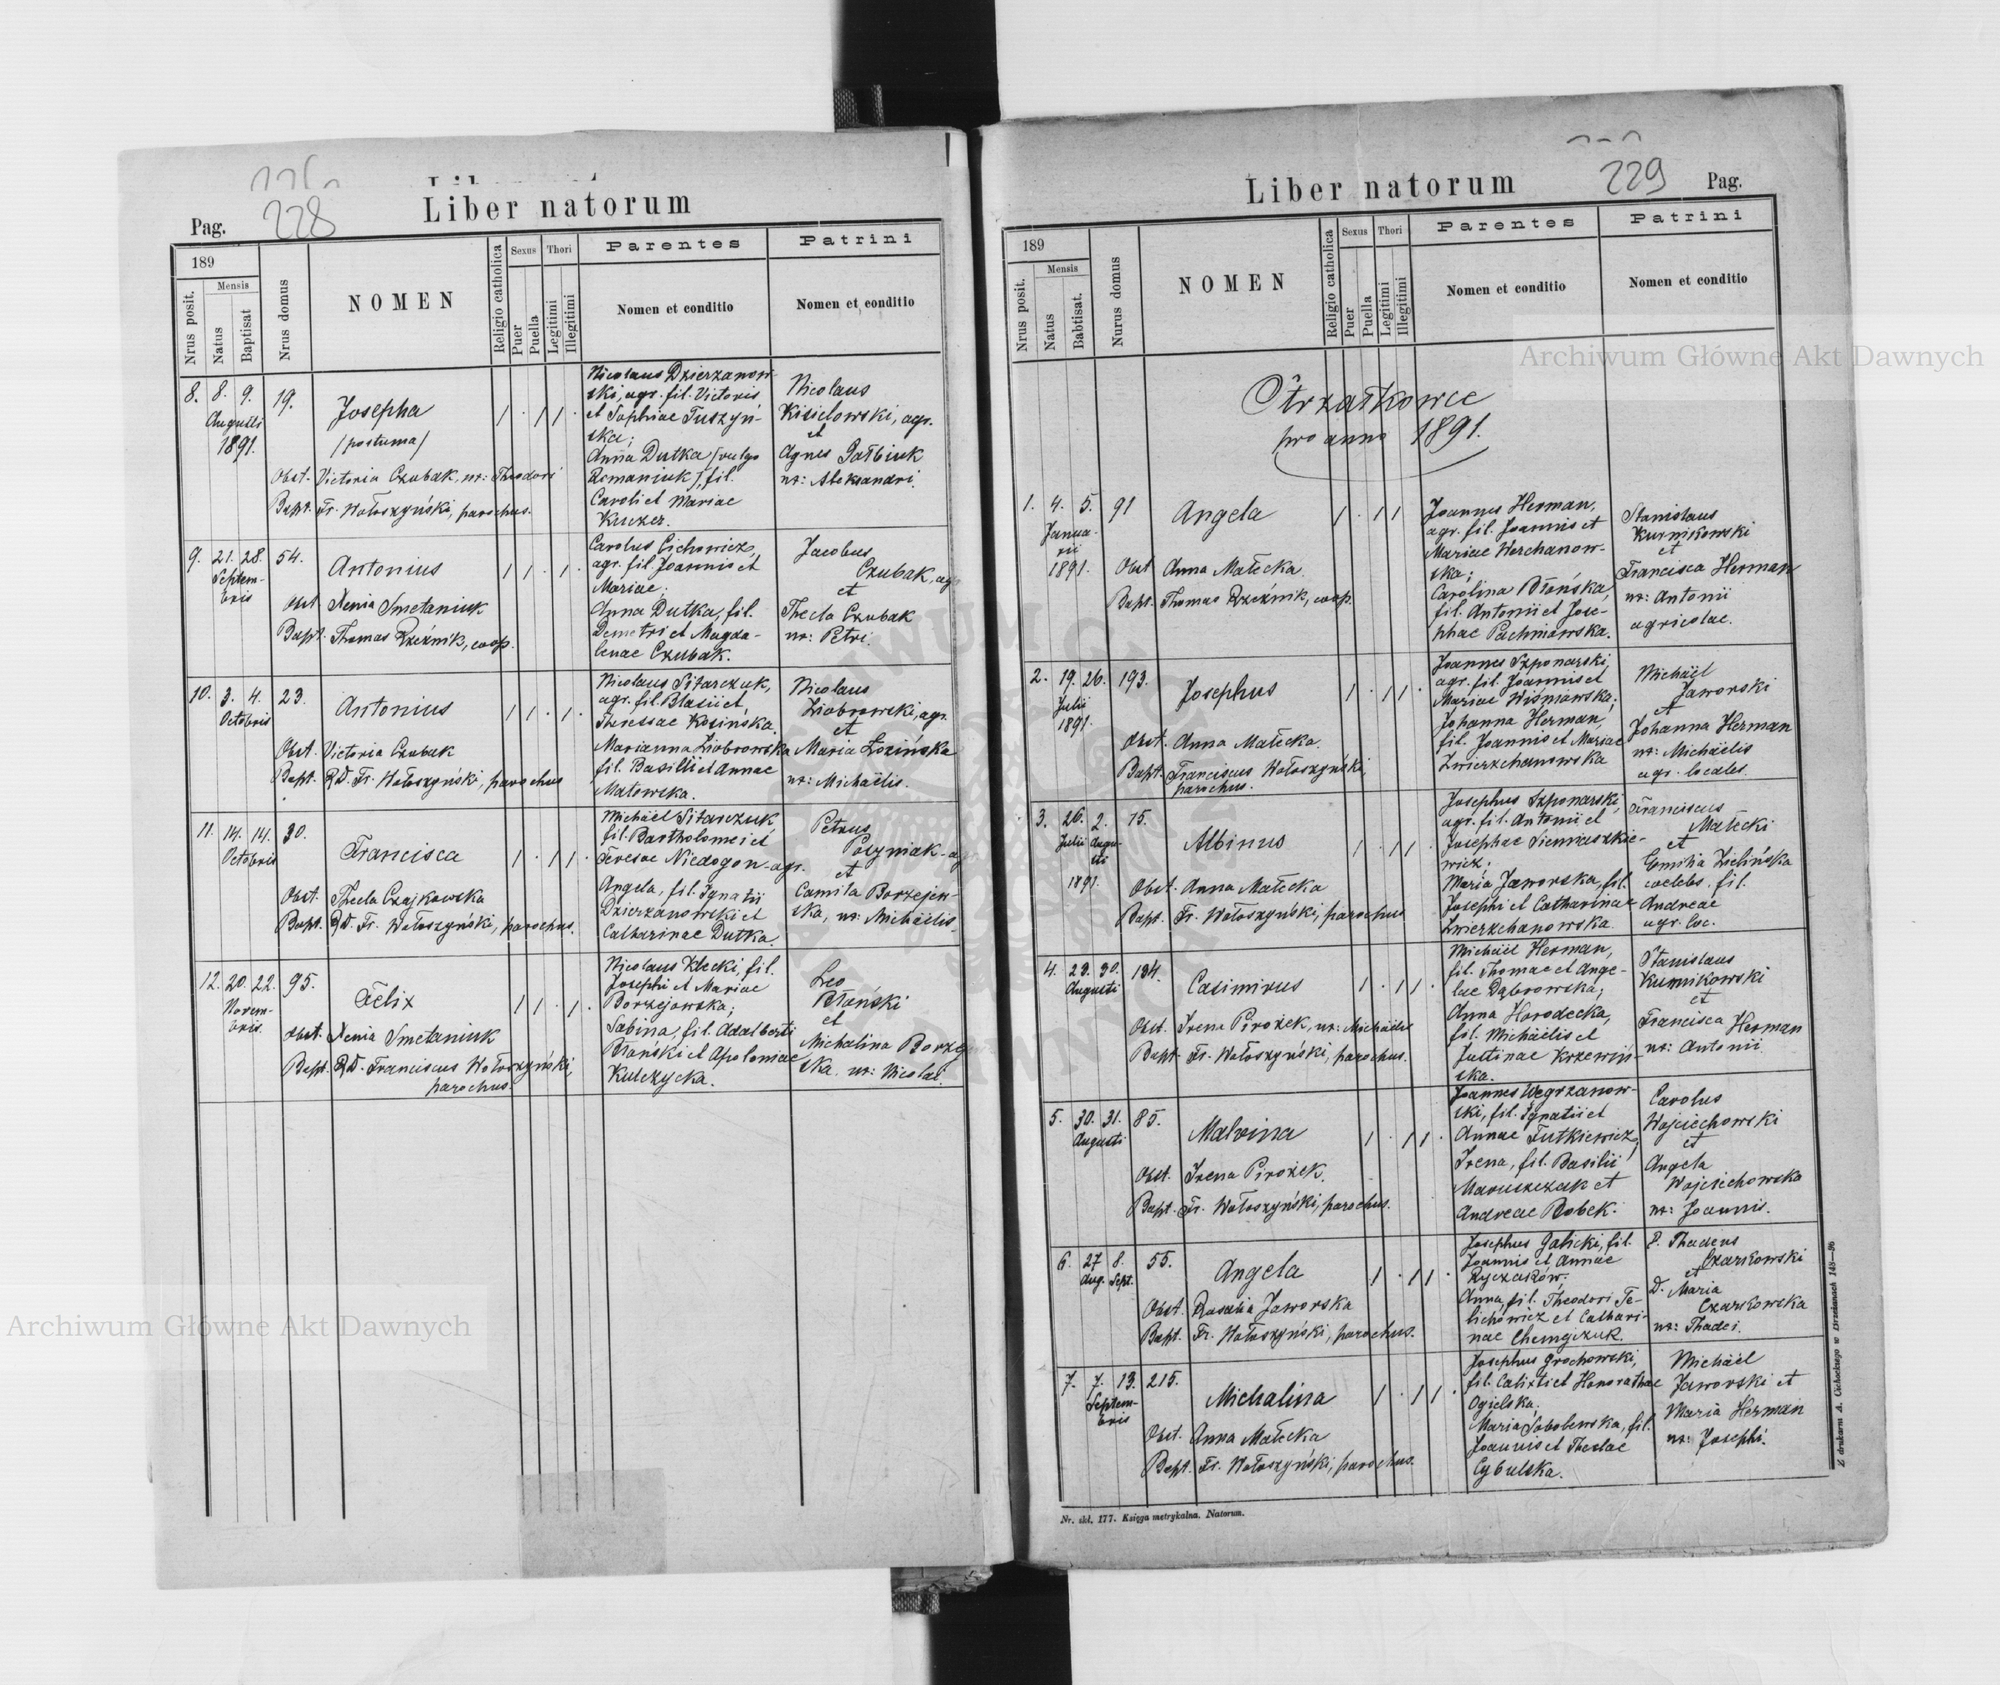 Liber natorum
Pag.
228
189
Nrus posit.
Mensis
Natus
Baptisat
Nrus domus
NOMEN
Religio catholica
Sexus
Puer
Puella
Thori
Legitimi
Illegitimi
Parentes
Nomen et conditio
Patrini
Nomen et conditio
8. 8. 9. 19.
Augusti
1891.
Josepha
/postuma/
Obst. Victoria Czubak, ux: Theodori
Bapt. Fr. Wołoszyński, parochus.
Nicolaus Dzierzanow-
ski, agr. fil. Victoris
et Sophiae Tuszyń-
ska;
Anna Dutka /vulgo
Romaniuk/, fil.
Caroli et Mariae
Nicolaus
Kisielowski, agr.
et
Agnes
ux: Aleksandri.
9. 21. 28. 54.
Septem-
bris
Antonius
Obst Xenia Smetaniuk
Bapt. Thomas Rzeźnik, coop.
Carolus Cichowicz,
agr. fil. Joannis et
Mariae;
Anna Dutka, fil.
Demetri et Magda-
lenae Czubak.
Jacobus
Czubak, agr
et
Thecla Czubak
ux: Petri.
10. 3. 4. 23.
Octobris
Antonius
Obst. Victoria Czubak
Bapt. RD. Fr. Wołoszyński, parochus
Nicolaus Sitarczuk,
agr. fil. Blasii et
Theressae Kosińska.
Marianna Ziobrowska
fil. Basilii et Annae
Malowska.
Nicolaus
Ziobrowski, agr.
et
Maria Łozińska
ux: Michaëlis.
11. 14. 14. 30.
Octobris
Francisca
Obst. Thecla Czajkowska
Bapt. RD. Fr. Wołoszyński, parochus.
Michaël Sitarczuk
fil. Bartholomei et
Teresae Niedogon - agr.
Angela, fil. Ignatii
Dzierzanowski et
Catharinae Dutka.
Petrus
et
Camila Borzejew-
ska, ux: Michaëlis.
12. 20. 22. 95.
Novem-
bris.
Felix
Obst. Xenia Smetaniuk
Bapt. RD. Franciscus Wołoszyński,
parochus
Nicolaus Klecki, fil.
Josephi et Mariae
Borzejowska;
Sabina, fil. Adalberti
Błoński et Apoloniae
Kulczycka.
Leo
Błoński
et
Michalina
ska ux: Nicolai.
Liber natorum
229
Pag.
189
Nrus posit.
Mensis
Natus
Babtisat.
Nurus domus
NOMEN
Religio catholica
Sexus
Puer
Puella
Thori
Legitimi
Illegitimi
Parentes
Nomen et conditio
Patrini
Nomen et conditio
Strzałkowce
pro anno 1891.
1. 4. 5. 91
Janua-
rii
1891.
Angela
Obst Anna Małecka.
Bapt. Thomas Rzeźnik, coop.
Joannes Herman,
agr. fil. Joannis et
Mariae Werchanow-
ska;
Carolina Błońska,
fil. Antonii et Jose-
phae Pachniowska.
Stanislaus
Kurnikowski
et
Francisca Herman
ux: Antonii
agricolae.
2. 19. 26. 193.
Julii
1891.
Josephus
Obst. Anna Małecka.
Bapt. Franciscus Wołoszyński,
parochus.
Joannes Szponarski,
agr. fil. Joannis et
Mariae Wiśniowska;
Johanna Herman,
fil. Joannis et Mariae
Zwierzchanowska
Michaël
Jaworski
et
Johanna Herman
ux: Michaëlis
agr. locales.
3. 26. 2. 15.
Julii Augu-
sti
1891.
Albinus
Obst. Anna Małecka
Bapt. Fr. Wołoszyński, parochus
Josephus Szponarski,
agr. fil. Antonii et
Josephae Siemiaszkie-
wicz;
Maria Jaworska, fil.
Josephi et Catharinae
Zwierzchanowska.
Franciscus
Małecki
et
Emilia Zielińska
coelebs, fil.
Andreae
agr. loc.
4. 23. 30. 134.
Augusti
Casimirus
Obst. Irena Pirożek, ux: Michaëlis
Bapt. Fr. Wołoszyński, parochus.
Michaël Herman,
fil. Thomae et Ange-
lae Dąbrowska;
Anna Horodecka,
fil. Michaëlis et
Justinae Krzewiń-
ska.
Stanislaus
Kurnikowski
et
Francisca Herman
ux: Antonii
5. 30. 31. 85.
Augusti
Malvina
Obst. Irena Pirożek.
Bapt. Fr. Wołoszyński, parochus.
Joannes Węgrzanow-
ski, fil. Ignatii et
Annae Futkiewicz;
Irena, fil. Basilii
Maruszczak et
Andreae Bobek.
Carolus
Wojciechowski
et
Angela
Wojciechowska
ux: Joannis.
6. 27 8. 55.
Aug. Sept.
Angela
Obst. Rosalia Jaworska
Bapt. Fr. Wołoszyński, parochus.
Josephus Galicki, fil.
Joannis et Annae
Anna, fil. Theodori Te-
lichowicz et Cathari-
nae
P. Thadeus
Czarkowski
et
D. Maria
Czarkowska
ux: Thadei.
7. 7. 13. 215.
Septem-
bris
Michalina
Obst. Anna Małecka
Bapt. Fr. Wołoszyński, parochus.
Josephus Grochowski,
fil. Calixti et Honorathae
Ogielska;
Maria Sobolewska, fil.
Joannis et Theclae
Cybulska.
Michaël
Jaworski et
Maria Herman
ux: Josephi.
Nr. skł. 177. Księga metrykalna. Natorum.
Archiwum Główne Akt Dawnych
Archiwum Główne Akt Dawnych